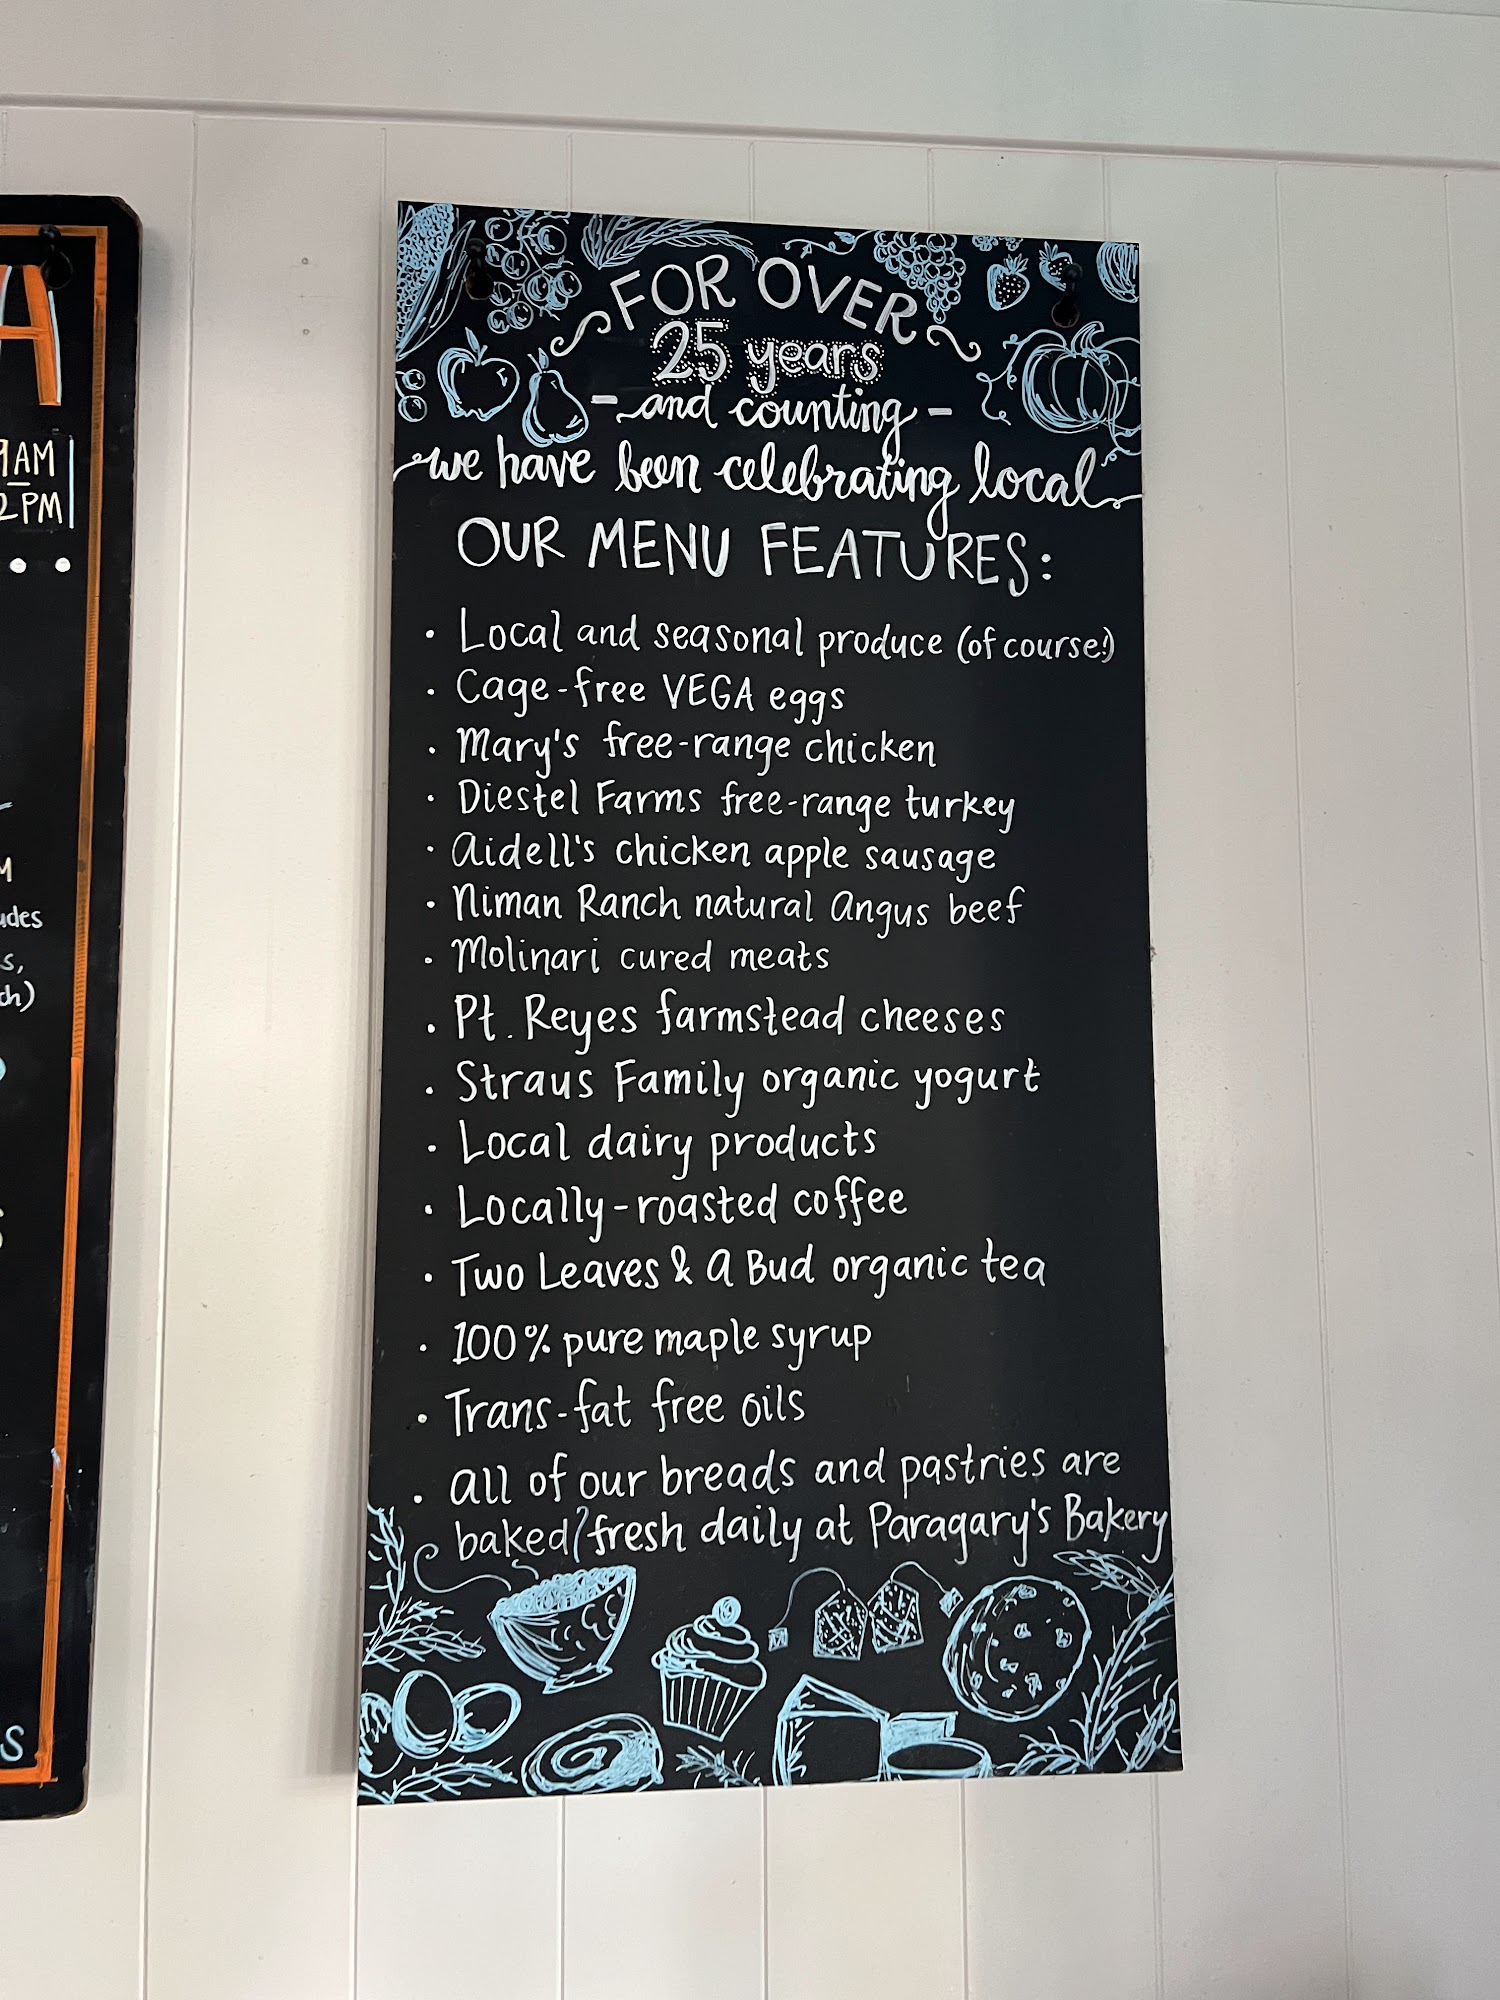 A
9AM
–
2PM
M
s,
ch)
S
FOR OVER
25 years
- and counting -
we have been celebrating local
OUR MENU FEATURES:
• Local and seasonal produce (of course!)
• Cage-free VEGA eggs
• Mary's free-range chicken
• Diestel Farms free-range turkey
• Aidell's chicken apple sausage
• Niman Ranch natural Angus beef
• Molinari cured meats
• Pt. Reyes farmstead cheeses
• Straus Family organic yogurt
• Local dairy products
• Locally-roasted coffee
• Two Leaves & A Bud organic tea
• 100% pure maple syrup
• Trans-fat free oils
• all of our breads and pastries are
baked fresh daily at Paragary's Bakery